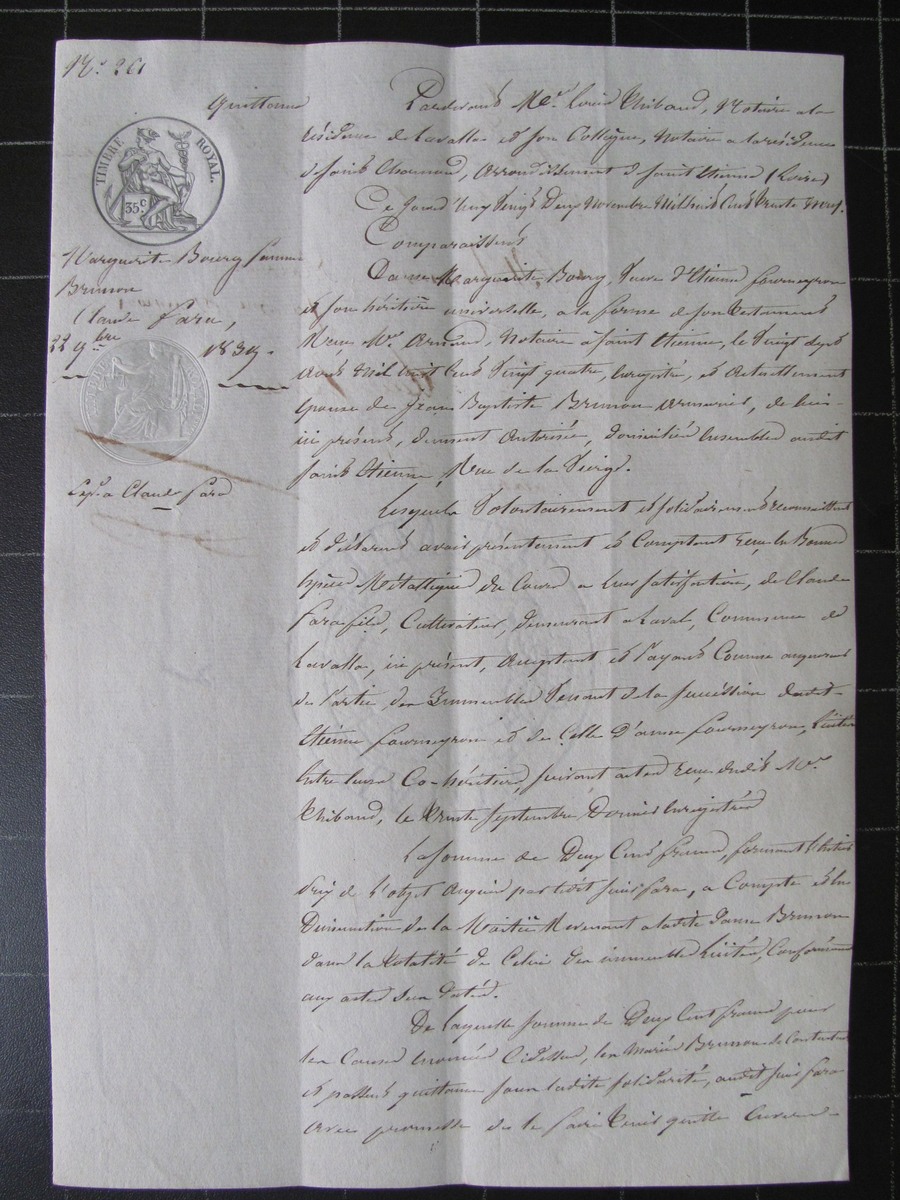 N.º 261
quittance
TIMBRE ROYAL.
35 c.
Marguerite Bourg femme
Brunon
Claude Fara,
22 9bre 1839.
Exp. a Claude Fara
Pardevant Me. Louis Thibaud, Notaire a la
résidence de Lavalla et son Collègue, Notaire a la résidence
de Saint Chamond, arrondissement de Saint Etienne (Loire)
Ce Jourd'huy Vingt Deux Novembre Mil huit Cent trente neuf.
Comparaissent
Dame Marguerite Bourg, Veuve d'Etienne fourneyron
et son héritière universelle, a la forme de son testament
Reçu Me. Arnaud, Notaire à Saint Etienne, le Vingt Sept
Août Mil huit Cent Vingt quatre, Enregistré, et actuellement
épouse de Jean Baptiste Brunon armurier, de lui
ici présent, dument autorisée, domiciliés Ensembles audit
Saint Etienne, Rue de la Vierge.
Lesquels Volontairement et solidairement reconnaissent
et déclarent avoir présentement et Comptant reçu En Bonne
Espèce Métallique du Cours a leur satisfaction, de Claude
Fara fils, Cultivateur, demeurant a Laval, Commune de
Lavalla, ici présent, acceptant et payant Comme acquereur
de Partie des Immeubles Venant de la succession dudit
Etienne fourneyron et de Celle d'anne fourneyron, licités
Entre leurs Co-héritiers, suivant actes reçu dudit Me.
Thibaud, le trente Septembre Dernier Enregistrés
La Somme de Deux Cent francs, formant l'Entier
Prix de l'objet acquis par ledit Sieur Fara, a Compte et En
Diminution de la Moitié Revenant a ladite Dame Brunon
dans la totalité de Celui des immeubles licités, Conformément
aux actes sus datés.
De laquelle Somme de Deux Cent francs pour
les Causes Enoncées Cidessus, les Mariés Brunon se Contentent
et passent quittance sous ladite solidarité, audit Sieur Fara
avec promesse de le faire tenir quitte Envers